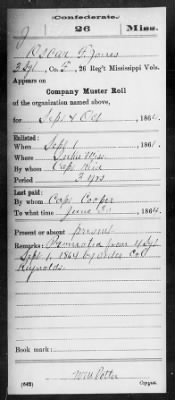 Confederate.
J 26 Miss.
Oscar F. Jones
3 Sgt, Co. E, 26 Reg't Mississippi Vols.
Appears on
Company Muster Roll
of the organization named above,
for Sept & Oct, 1864.
Enlisted:
When Sept 1, 1861.
Where Iuka Miss
By whom Capt
Period 3 yrs
Last paid:
By whom Capt Cooper
To what time June 30, 1864.
Present or absent present
Remarks: Promoted from 4 Sgt
Sept. 1, 1864 by order Col
Reynolds.
Book mark:
(642)
Copyist.